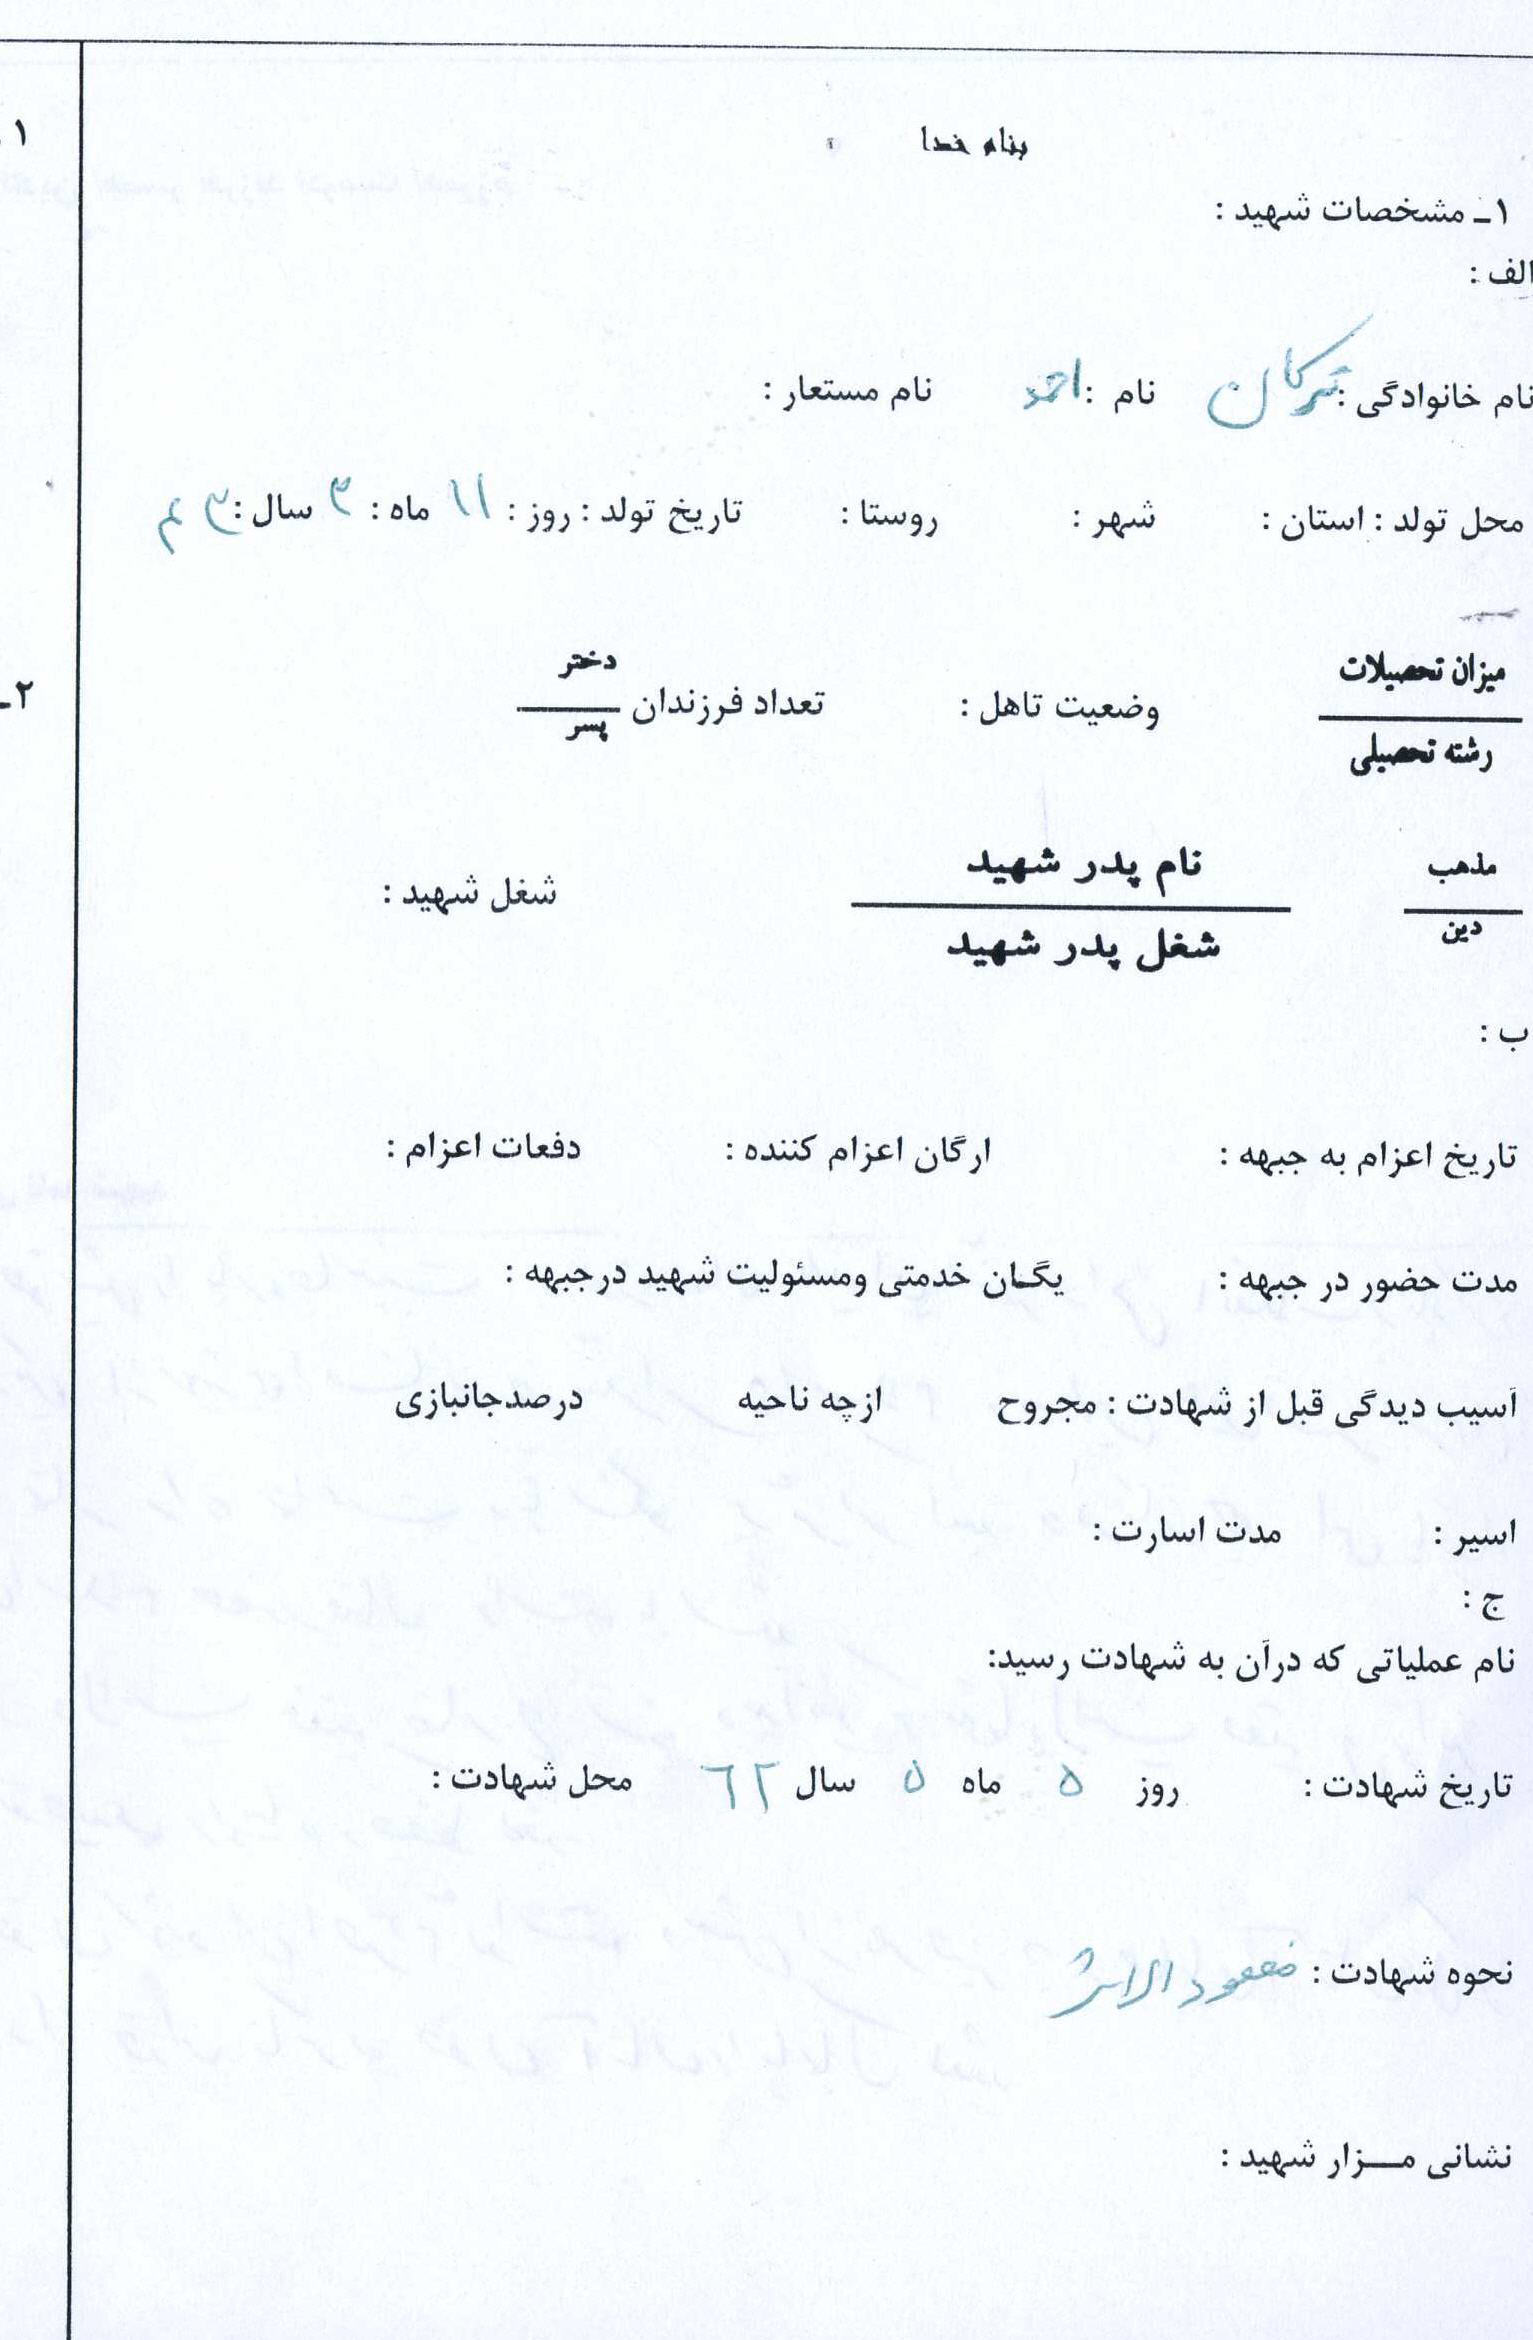 بنام خدا
۱ـ مشخصات شهید :
الف :
نام خانوادگی : ترکان نام : احمد نام مستعار :
محل تولد : استان : شهر : روستا : تاریخ تولد : روز : ۱۱ ماه : ۳ سال :
میزان تحصیلات
رشته تحصیلی
وضعیت تاهل : تعداد فرزندان
دختر
پسر
مذهب
دین
نام پدر شهید
شغل پدر شهید
شغل شهید :
ب :
تاریخ اعزام به جبهه : ارگان اعزام کننده : دفعات اعزام :
مدت حضور در جبهه : یگـان خدمتی ومسئولیت شهید درجبهه :
آسیب دیدگی قبل از شهادت : مجروح ازچه ناحیه درصدجانبازی
اسیر : مدت اسارت :
ج :
نام عملیاتی که درآن به شهادت رسید:
تاریخ شهادت : روز ۵ ماه ۵ سال ۶۲ محل شهادت :
نحوه شهادت : مفقود الاثر
نشانی مـــزار شهید :
۱
۲ـ